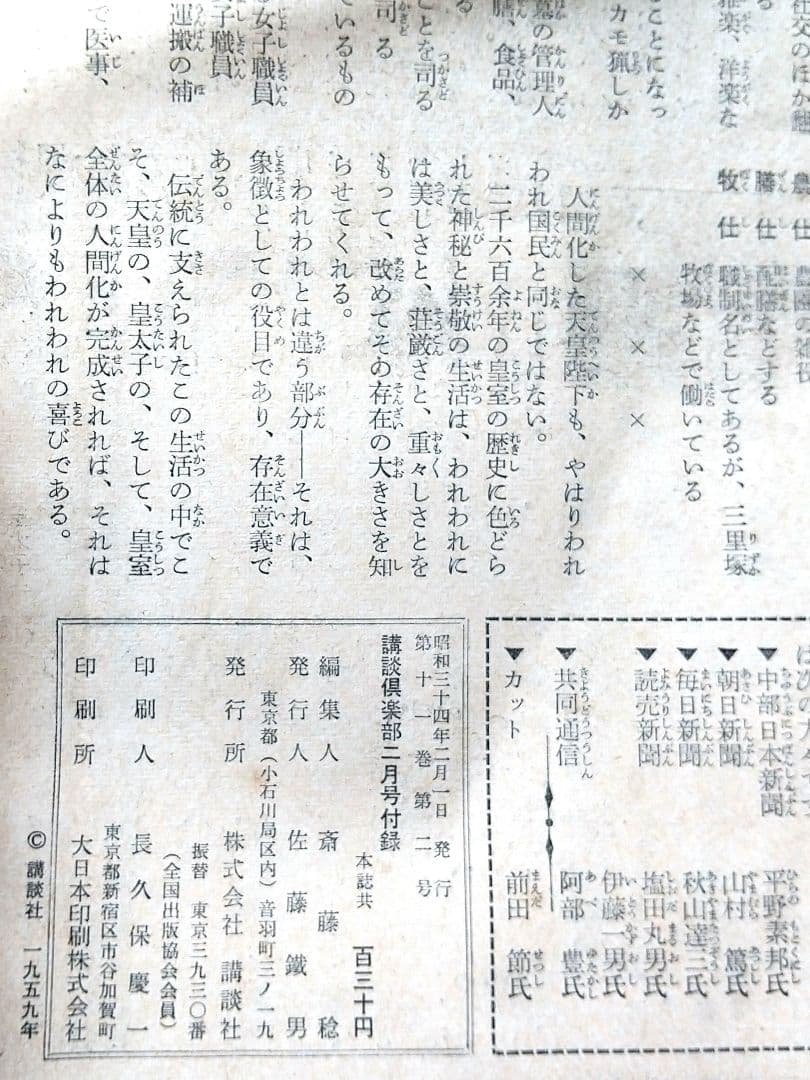 雅楽、洋楽な
ことになっ
カモ猟しか
墓の管理人
膳、食品、
ことを司る
司る
ているもの
女子職員
子職員
運搬の補
で医事、
農仕
膳仕 配膳などする
牧仕 職制名としてあるが、三里塚
牧場などで働いている
× × ×
人間化した天皇陛下も、やはりわれ
われ国民と同じではない。
二千六百余年の皇室の歴史に色どら
れた神秘と崇敬の生活は、われわれに
は美しさと、荘厳さと、重々しさとを
もって、改めてその存在の大きさを知
らせてくれる。
われわれとは違う部分――それは、
象徴としての役目であり、存在意義で
ある。
伝統に支えられたこの生活の中でこ
そ、天皇の、皇太子の、そして、皇室
全体の人間化が完成されれば、それは
なによりもわれわれの喜びである。
▼中部日本新聞 平野素邦氏
▼朝日新聞 山村篤氏
▼毎日新聞 秋山達三氏
▼読売新聞 塩田丸男氏
伊藤一男氏
▼共同通信 阿部豊氏
▼カット 前田節氏
昭和三十四年二月一日発行
第十一巻第二号
講談倶楽部二月号付録
本誌共 百三十円
編集人 斎藤稔
発行人 佐藤鐵男
東京都(小石川局区内)音羽町三ノ一九
発行所 株式会社 講談社
振替 東京三九三〇番
(全国出版協会会員)
印刷人 長久保慶一
東京都新宿区市谷加賀町
印刷所 大日本印刷株式会社
© 講談社 一九五九年